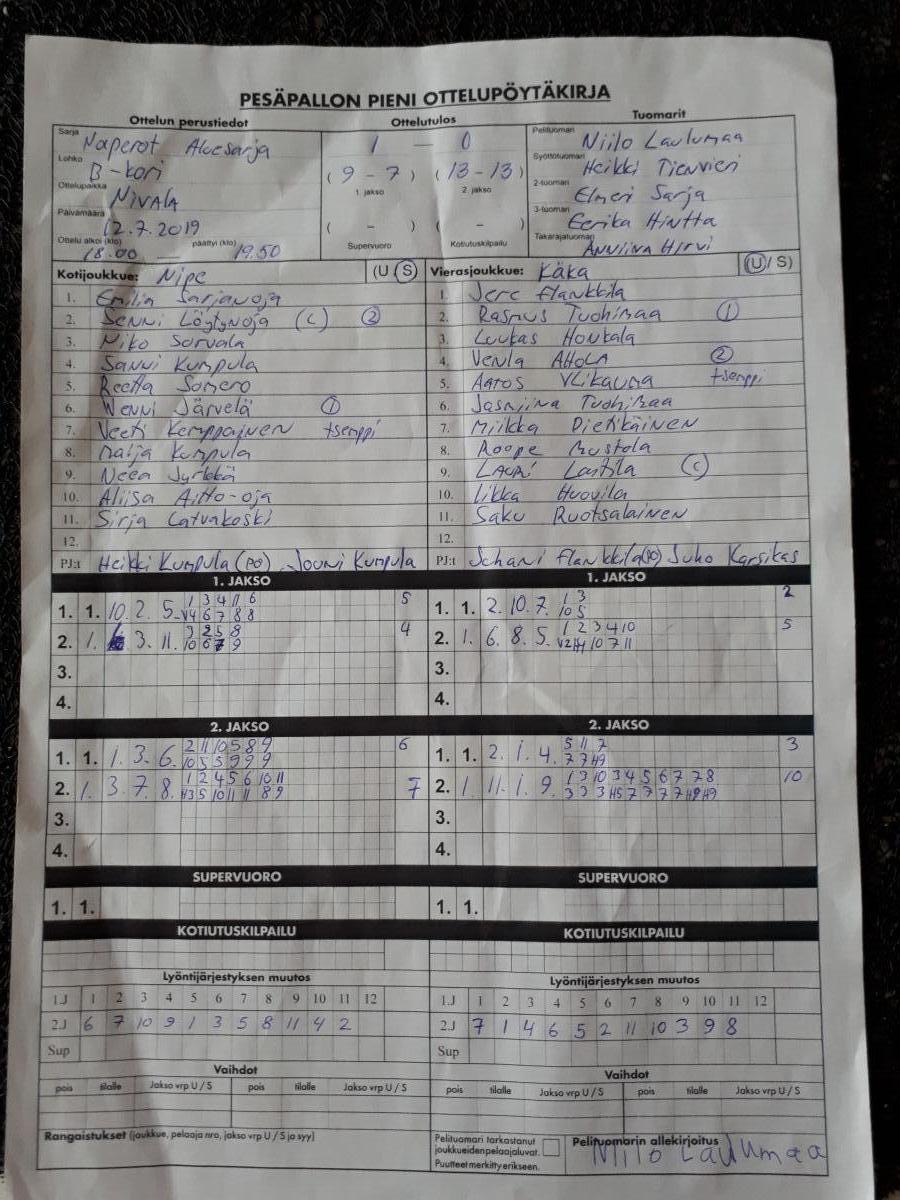 PESÄPALLON PIENI OTTELUPÖYTÄKIRJA
Ottelun perustiedot Ottelutulos Tuomarit
Sarja Naperot Aluesarja 1 — 0 Pelituomari Niilo Laulumaa
Lohko B-kori (9 - 7) (13 - 13) Syöttötuomari Heikki Tienvieri
Ottelupaikka NIVALA 1. jakso 2. jakso 2-tuomari Elmeri Sarja
Päivämäärä 12.7.2019 ( - ) ( - ) 3-tuomari Eerika Hintta
Ottelu alkoi (klo) 18.00 — päättyi (klo) 19.50 Supervuoro Kotiutuskilpailu Takarajatuomari Anniina Hirvi
Kotijoukkue: Nipe (U S) Vierasjoukkue: KäKa (U / S)
1. Emilia Sarjanoja 1. Jere Flankkila
2. Senni Löytynoja (C) 2 2. Rasmus Tuohimaa 1
3. Niko Sorvala 3. Luukas Honkala
4. Sanni Kumpula 4. Venla Ahola 2
5. Reetta Somero 5. Aatos Ylikauma tsemppi
6. Wenni Järvelä 1 6. Jasmiina Tuohimaa
7. Veeti Kemppainen tsemppi 7. Miikka Pietikäinen
8. Maija Kumpula 8. Roope Mustola
9. Neea Jyrkkä 9. Lauri Lastila (C)
10. Aliisa Aitto-oja 10. Iikka Huovila
11. Sirja Latvakoski 11. Saku Ruotsalainen
12. 12.
PJ:t Heikki Kumpula (PO) Jouni Kumpula PJ:t Juhani Flankkila (PO) Juho Karsikas
1. JAKSO 1. JAKSO
1. 1. 10. 2. 5. 1 3 4 11 6 5 1. 1. 2. 10. 7. 1 3 2
V4 6 7 8 8 10 5
2. 1. 3. 11. 3 2 5 8 4 2. 1. 6. 8. 5. 1 2 3 4 10 5
10 6 7 9 10 7 11
3. 3.
4. 4.
2. JAKSO 2. JAKSO
1. 1. 1. 3. 6. 2 11 10 5 8 9 6 1. 1. 2. 1. 4. 5 11 7 3
10 5 5 9 9 9 7 7 H9
2. 1. 3. 7. 8. 1 2 4 5 6 10 11 7 2. 1. 11. 1. 9. 1 3 10 3 4 5 6 7 7 8 10
H3 5 10 11 11 8 9 3 3 3 H5 7 7 7 7 H9 H9
3. 3.
4. 4.
SUPERVUORO SUPERVUORO
1. 1. 1. 1.
KOTIUTUSKILPAILU KOTIUTUSKILPAILU
Lyöntijärjestyksen muutos Lyöntijärjestyksen muutos
1.J 1 2 3 4 5 6 7 8 9 10 11 12 1.J 1 2 3 4 5 6 7 8 9 10 11 12
2.J 6 7 10 9 1 3 5 8 11 4 2 2.J 7 1 4 6 5 2 11 10 3 9 8
Sup Sup
Vaihdot Vaihdot
pois tilalle Jakso vrp U / S pois tilalle Jakso vrp U / S pois tilalle Jakso vrp U / S pois tilalle Jakso vrp U / S
Rangaistukset (joukkue, pelaaja nro, jakso vrp U / S ja syy) Pelituomari tarkastanut joukkueidenpelaajaluvat. Puutteet merkitty erikseen. Pelituomarin allekirjoitus
Niilo Laulumaa